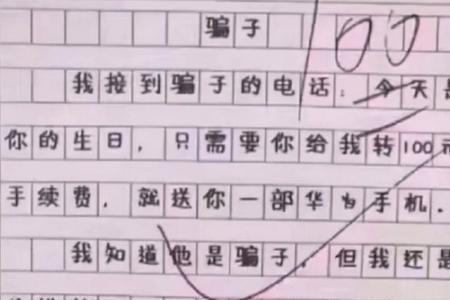 骗子
100
我接到骗子的电话：今天是
你的生日，只需要你给我转100元
手续费，就送你一部华为手机.
我知道他是骗子，但我还是